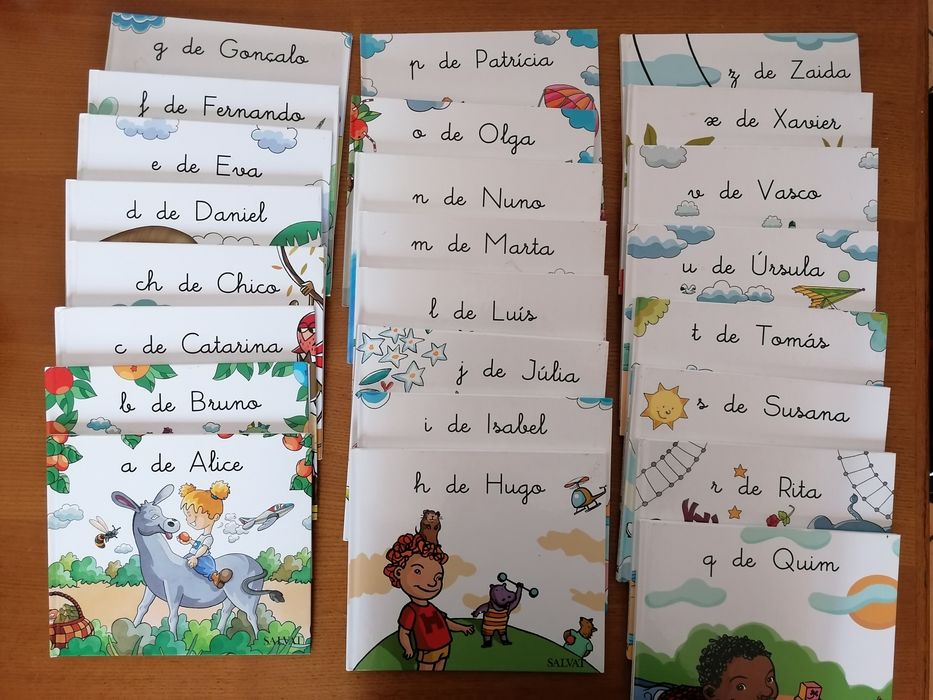 g de Gonçalo
f de Fernando
e de Eva
d de Daniel
ch de Chico
c de Catarina
b de Bruno
a de Alice
SALVAT
p de Patrícia
o de Olga
n de Nuno
m de Marta
l de Luís
j de Júlia
i de Isabel
h de Hugo
H
SALVAT
z de Zaida
x de Xavier
v de Vasco
u de Úrsula
t de Tomás
s de Susana
r de Rita
q de Quim